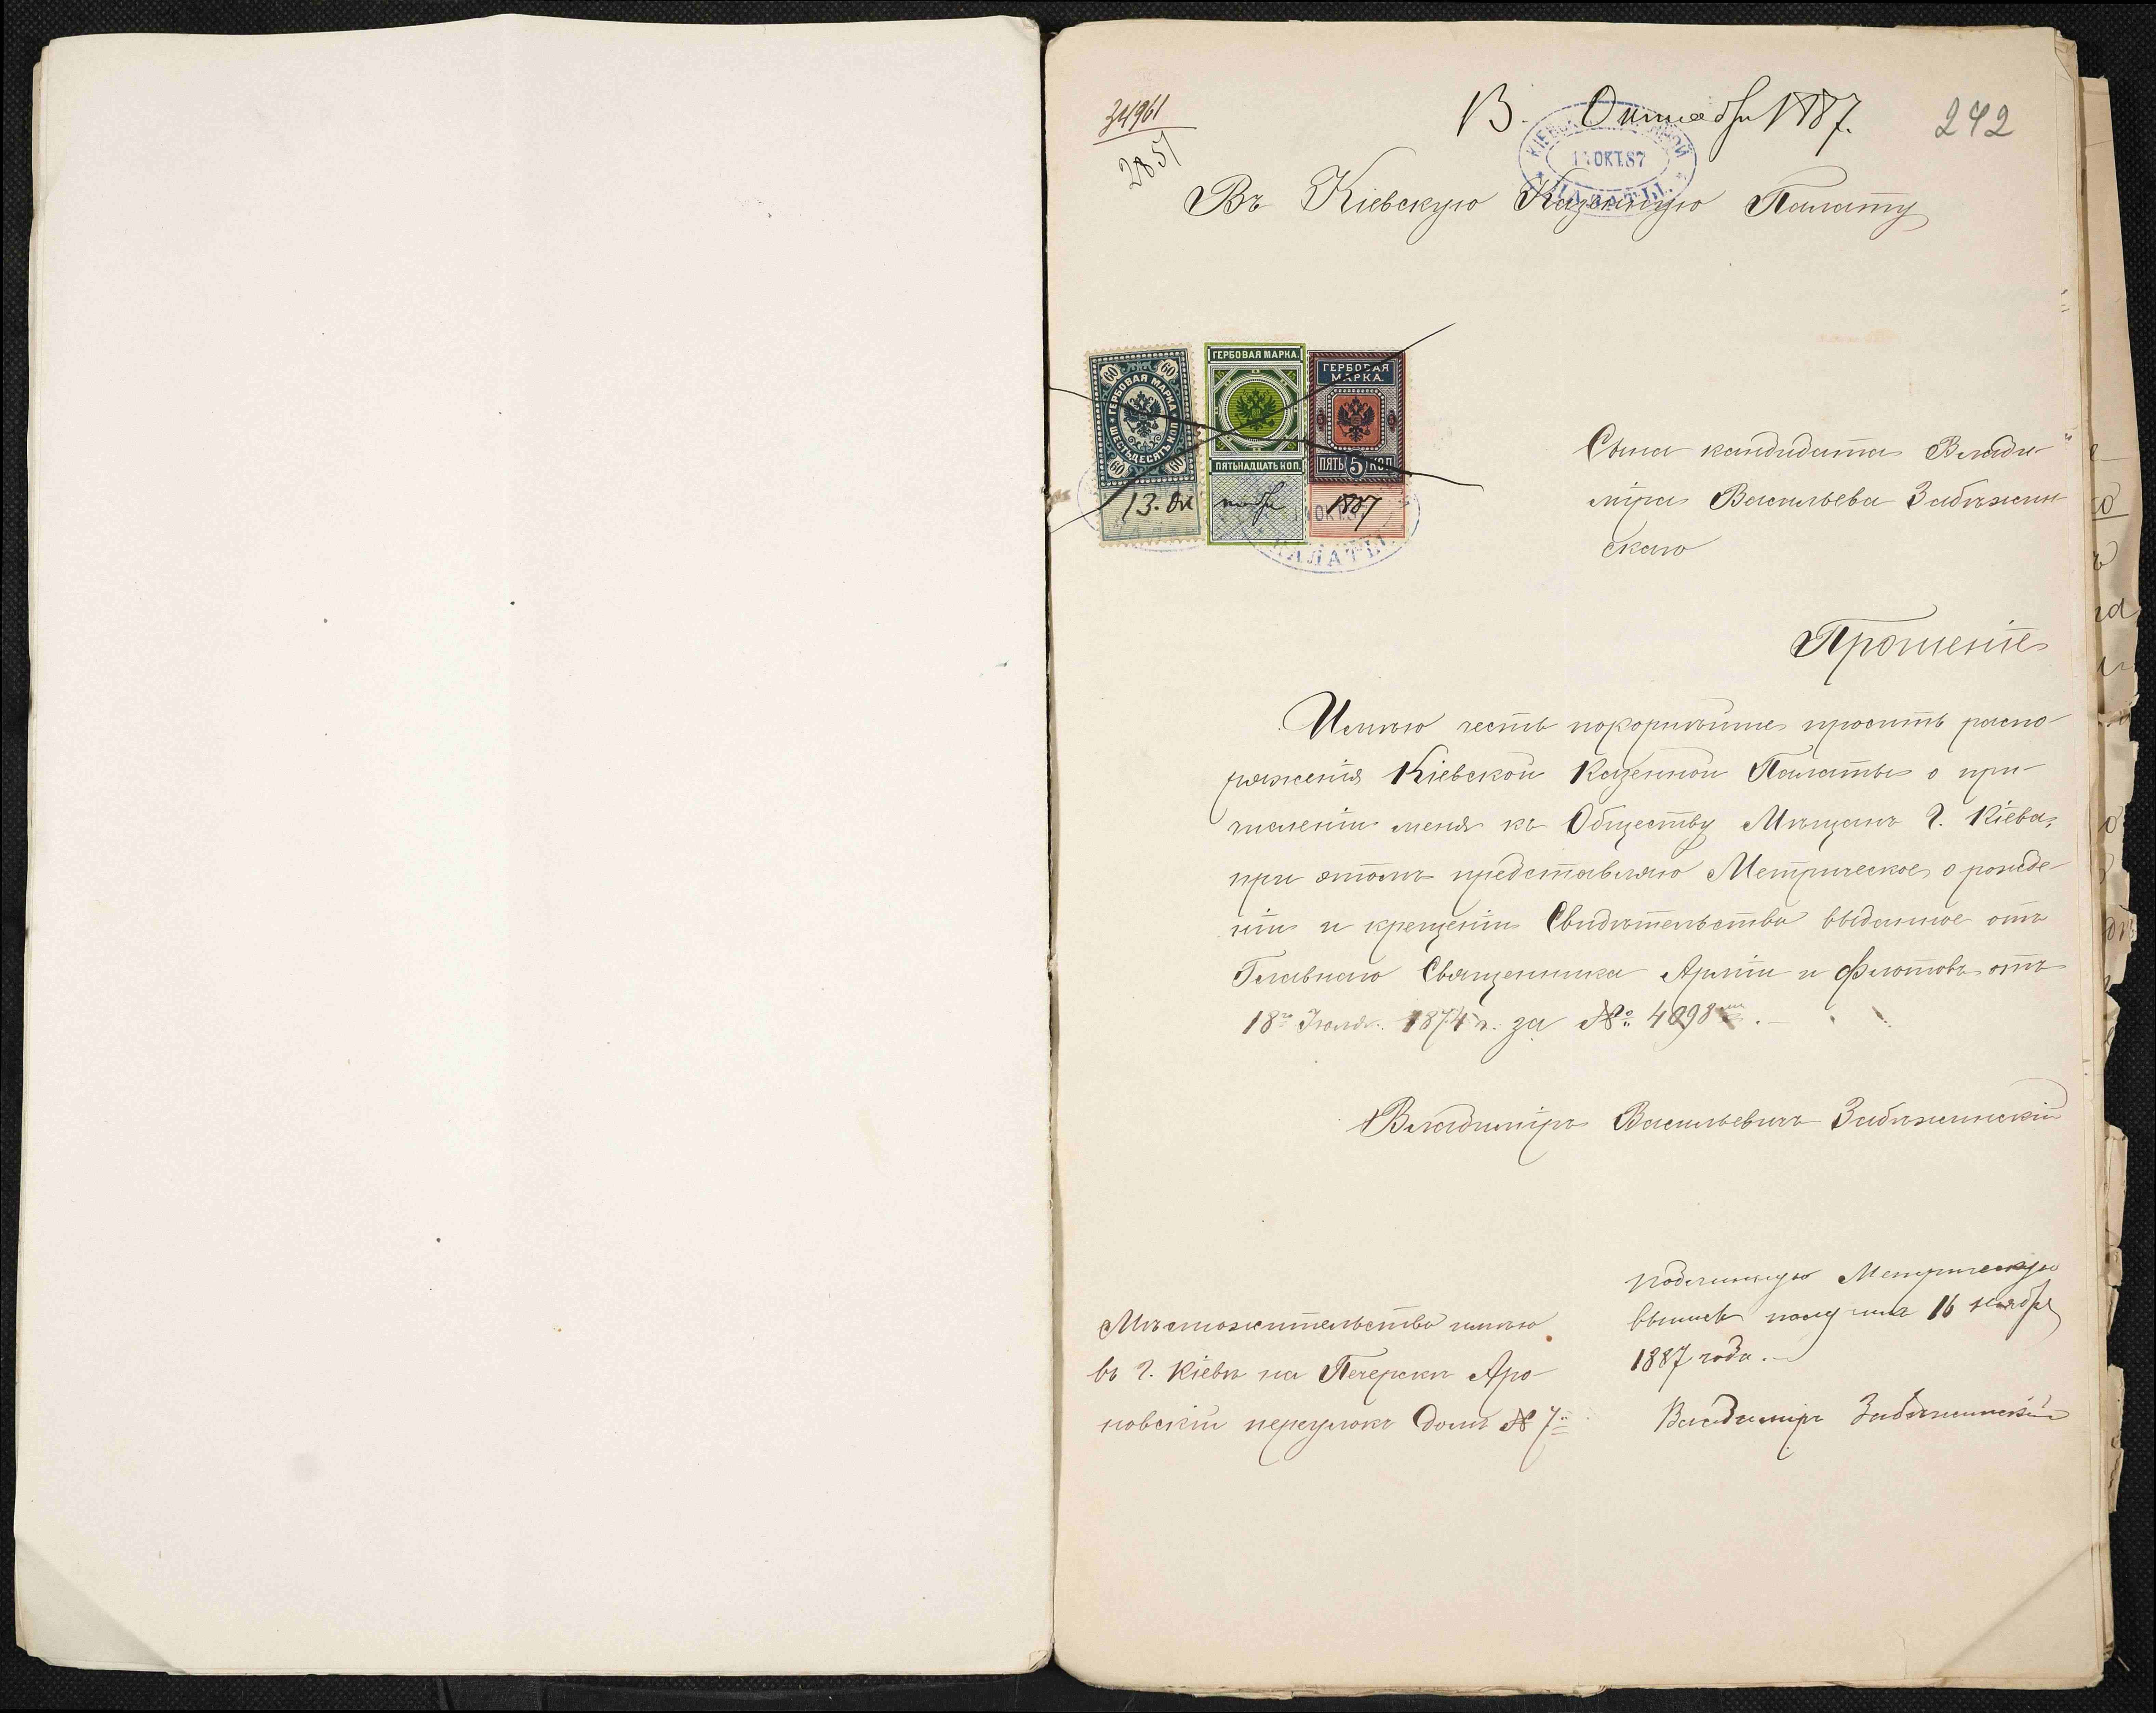 34961
2851
13. Октября 1887.
242
КІЕВСКОЙ
13 ОКТ.87
ПАЛАТЫ.
Въ Кіевскую Казенную Палату
60 60
ГЕРБОВАЯ МАРКА
ШЕСТЬДЕСЯТЬ КОП.
60 60
ГЕРБОВАЯ МАРКА.
ПЯТЬНАДЦАТЬ КОП.
ГЕРБОВАЯ
МАРКА.
ПЯТЬ 5 КОП
13. Ок тября 1887
ОКТ.87
ПАЛАТЫ.
Сына кандидата Влади-
міра Васильева Забѣжин
скаго
Прошеніе
Имѣю честь покорнѣйше просить распо-
ряженія Кіевской Казенной Палаты о при-
численіи меня къ Обществу Мѣщанъ г. Кіева,
при этомъ представляю Метрическое о рожде-
ніи и крещеніи Свидѣтельство выданное отъ
Главнаго Священника Арміи и флотовъ отъ
18го Іюля 1874 г. за №: 4098
Владиміръ Васильевичъ Забѣжинскій
Мѣстожительство имѣю
въ г. Кіевѣ на Печерскѣ Аро-
новскій переулокъ домъ № 7й
Подлинную Метрическую
выпись получилъ 16 ноября
1887 года.
Владиміръ Забѣжинскій